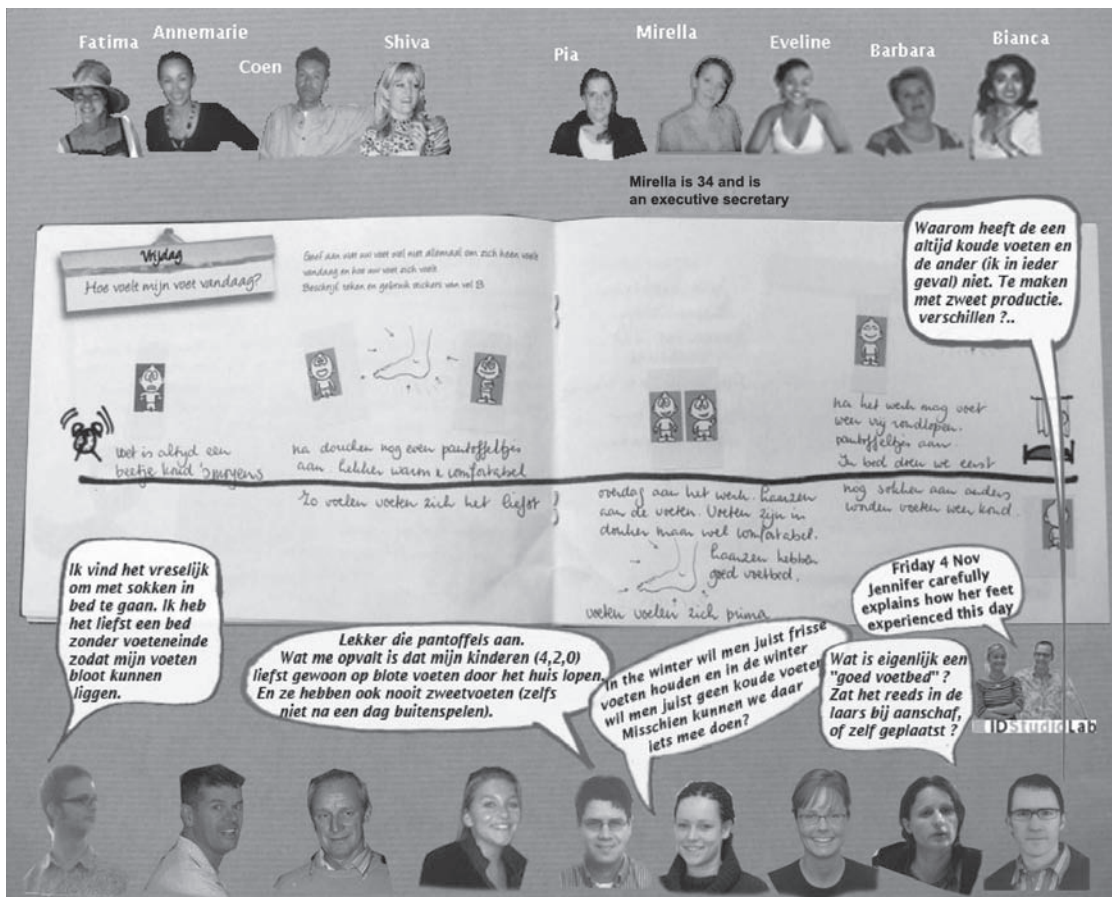 Fatima
Annemarie
Coen
Shiva
Pia
Mirella
Eveline
Barbara
Bianca
Mirella is 34 and is
an executive secretary
Waarom heeft de een
altijd koude voeten en
de ander (ik in ieder
geval) niet. Te maken
met zweet productie.
verschillen ?..
Vrijdag
Hoe voelt mijn voet vandaag?
Geef aan wat uw voet wel niet allemaal om zich heen voelt
vandaag en hoe uw voet zich voelt
Beschrijf, teken en gebruik stickers van vel B
voet is altijd een
beetje koud 'smorgens
na douchen nog even pantoffeltjes
aan. lekker warm & comfortabel
Zo voelen voeten zich het liefst
overdag aan het werk. Laarzen
aan de voeten. Voeten zijn in
donker maar wel comfortabel.
Laarzen hebben
goed voetbed.
voeten voelen zich prima
na het werk mag voet
weer vrij rondlopen.
pantoffeltjes aan.
In bed doen we eerst
nog sokken aan anders
worden voeten weer koud.
Ik vind het vreselijk
om met sokken in
bed te gaan. Ik heb
het liefst een bed
zonder voeteneinde
zodat mijn voeten
bloot kunnen
liggen.
Lekker die pantoffels aan.
Wat me opvalt is dat mijn kinderen (4,2,0)
liefst gewoon op blote voeten door het huis lopen.
En ze hebben ook nooit zweetvoeten (zelfs
niet na een dag buitenspelen).
In the winter wil men juist frisse
voeten houden en in de winter
wil men juist geen koude voeten
Misschien kunnen we daar
iets mee doen?
Friday 4 Nov
Jennifer carefully
explains how her feet
experienced this day
Wat is eigenlijk een
"goed voetbed" ?
Zat het reeds in de
laars bij aanschaf,
of zelf geplaatst ?
IDStudioLab